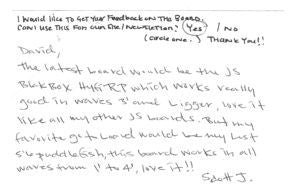 I Would like to Get your Feedback on the Board.
Can I use this for our site/newsletter? Yes / No
(circle one.) Thank You!!
David,
The latest board would be the JS
BlakBox HyFi RP which works really
good in waves 3' and bigger, love it
like all my other JS boards. But my
favorite go to board would be my Lost
5'6 puddlefish, this board works in all
waves from 1' to 4', love it!!
Scott J.